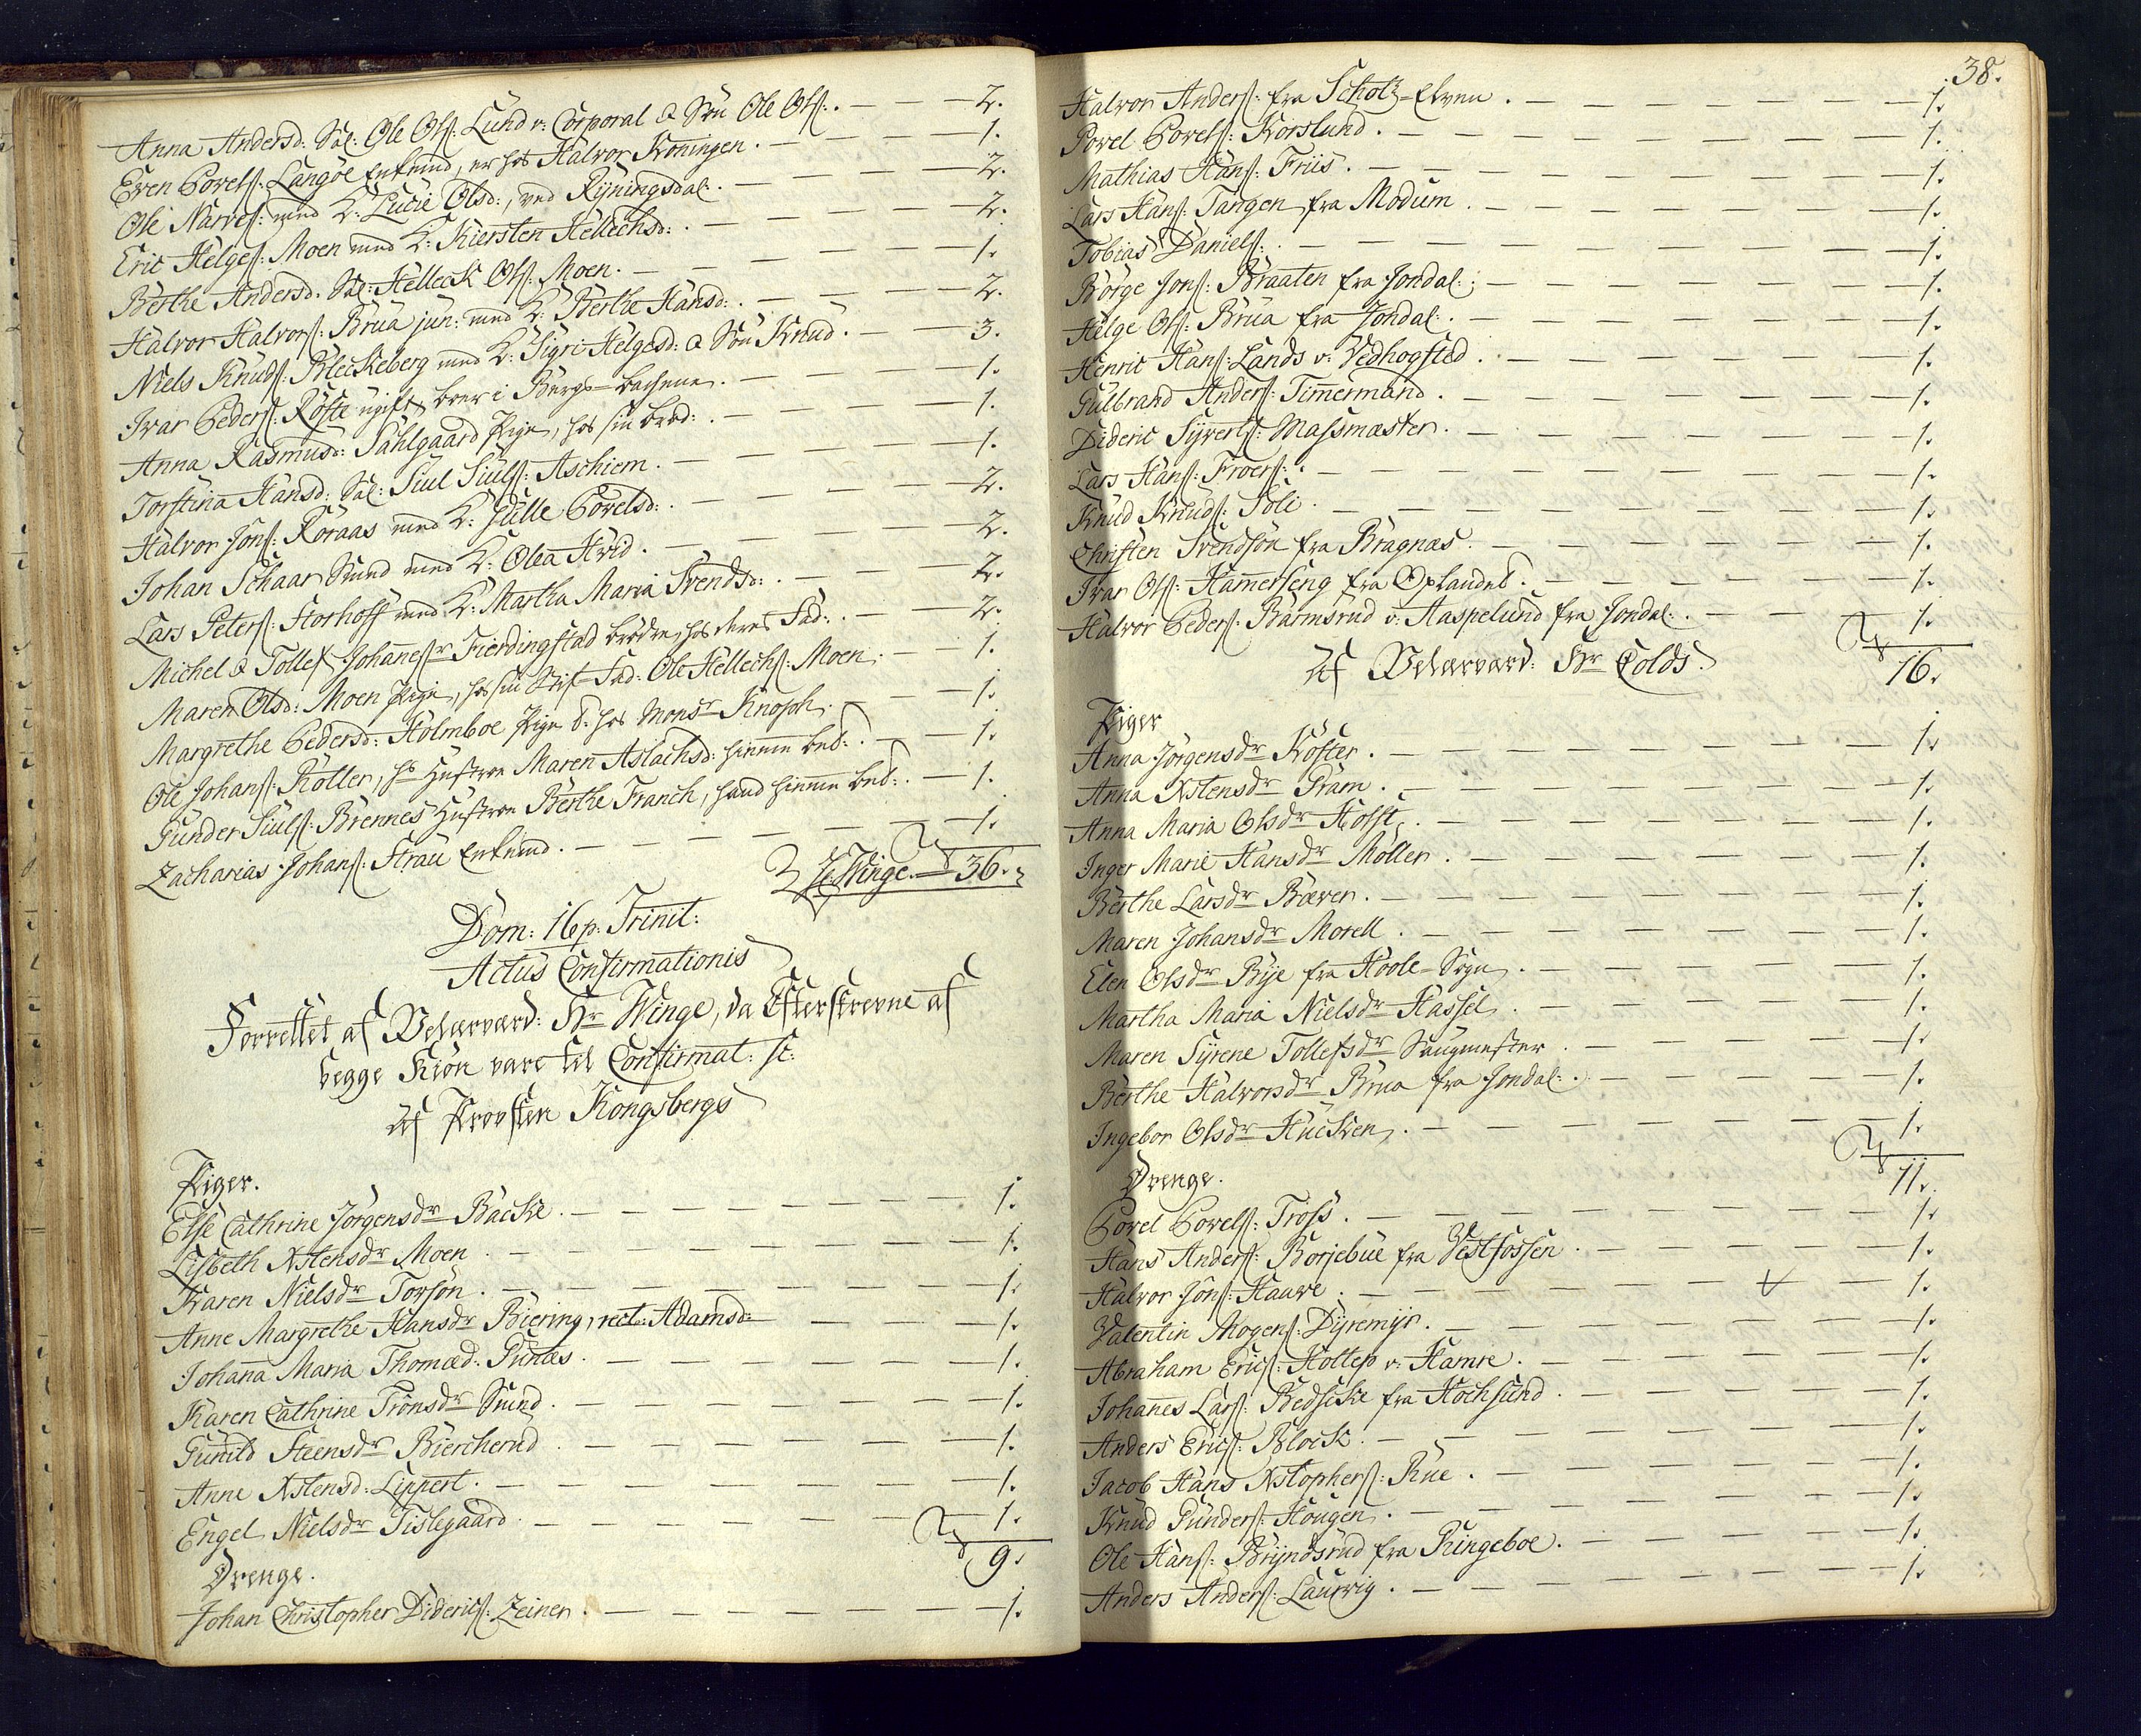 Anna Andersd: Sal: Ole Ols: Lund v: Corporal & Sön Ole Ols: . — — 2.
Even Povels: Langöe Enkemd, er hos Halvor Koningen . — — 1.
Ole Narves: med K: Lucie Olsd:, ved Ryningsdal: . — — 2.
Eric Helges: Moen med K: Kiersten Hellechsd: . — — 2.
Berthe Andersd: Sal: Helleck Ols: Moen . — — 1.
Halvor Halvors: Brua jun: med K: Berthe Hansd: . — — 2.
Niels Knuds: Bleckeberg med K: Sigri Helgesd: & Sön Knud . — — 3.
Ivar Peders: Röste ugift, boer i Bergs-bachene . — — 1.
Anna Rasmusd: Sahlgaard Pige, hos sin brod: . — — 1.
Torstina Hansd: Sal: Siul Siuls: Aschiem . — — 1.
Halvor Jons: Roraas med K: Gulle Povelsd: . — — 2.
Johan Schaar Smed med K: Olea Hvid . — — 2.
Lars Peters: Storhoff med K: Martha Maria Svendsd: . — — 2.
Michel & Tollef Johannessr Fierdingstad brödre, hos deres Fad: . — — 2.
Maren Olsd: Moen Pige, hos sin Stif-Fad: Ole Hellechs: Moen . — — 1.
Margrethe Pedersd: Holmboe Pige t: hos Monsr Knoph . — — 1.
Ole Johans: Koller, hs Hustroe Maren Aslachsd: hiemme bet: . — — 1.
Gunder Siuls: Brennes Hustroe Berthe Franch, hand hiemme bet: . — 1.
Zacharias Johans: Strau Enkemd . — — 1.
Hr Winge. — 36.
Dom: 16 p: Trinit:
Actus Confirmationis
Forrettet af Velærværd: Hr Winge, da Efterskrevne af
begge Kiön vare til Confirmat: sc:
Af Provsten Kongsbergs
Piger.
Else Cathrine Jörgensdr Backe . — — 1.
Lisbeth Xstensdr Moen . — — 1.
Karen Nielsdr Torsön . — — 1.
Anne Margrethe Hansdr Biering, rect: Adamsd: — — 1.
Johana Maria Thomæd: Punæs . — — 1.
Karen Cathrine Trönsdr Smed . — — 1.
Gunild Steensdr Bierchernd . — — 1.
Anne Xstensd: Lippert . — — 1.
Engel Nielsdr Tislegaard . — — 1.
9.
Drenge.
Johan Christopher Diderics: Zeiner . — — 1.
38.
Halvor Anders: fra Scholz-Elven . — — 1.
Povel Povels: Korslund . — — 1.
Mathias Hans: Friis . — — 1.
Lars Hans: Tangen fra Modum . — — 1.
Tobias Daniels: . — — 1.
Börge Jons: Braaten fra Jondal: . — — 1.
Helge Ols: Brua fra Jondal: . — — 1.
Henric Hans: Lands v: Vedhogsted . — — 1.
Gulbrand Anders: Timmermand . — — 1.
Dideric Syverts: Massmæster . — — 1.
Lars Hans: Froers: . — — 1.
Knud Knuds: Soli . — — 1.
Christen Svendsön fra Bragnæs . — — 1.
Ivar Ols: Hamerseng fra Oplandet . — — 1.
Halvor Peders: Barmsrud v: Aaspelund fra Jondal: . — — 1.
16.
Af Velærværd: Hr Colds
Piger
Anna Jörgensdr Koster . — — 1.
Anna Xstensdr Gram . — — 1.
Anna Maria Olsdr Holst . — — 1.
Inger Marie Hansdr Möller . — — 1.
Berthe Larsdr Bæver . — — 1.
Maren Johansdr Morell . — — 1.
Elen Olsdr Bye fra Hoole-Sogn . — — 1.
Martha Maria Nielsdr Hassel . — — 1.
Maren Syrene Tollefsdr Saugmester . — — 1.
Berthe Halvorsdr Brua fra Jondal: . — — 1.
Ingebor Olsdr Hucken . — — 1.
11.
Drenge.
Povel Povels: Tross . — — 1.
Hans Anders: Borjebue fra Vestfossen . — — 1.
Halvor Jons: Haave . — — 1.
Valentin Mogens: Dyremyr . — — 1.
Abraham Erics: Koltep v: Hamre . — — 1.
Johannes Lars: Bedscke fra Hochsund . — — 1.
Anders Erics: Block . — — 1.
Jacob Hans Xstophers: Rue . — — 1.
Knud Gunders: Hougen . — — 1.
Ole Hans: Bryndsrud fra Ringeboe . — — 1.
Anders Anders: Laurvig . — — 1.